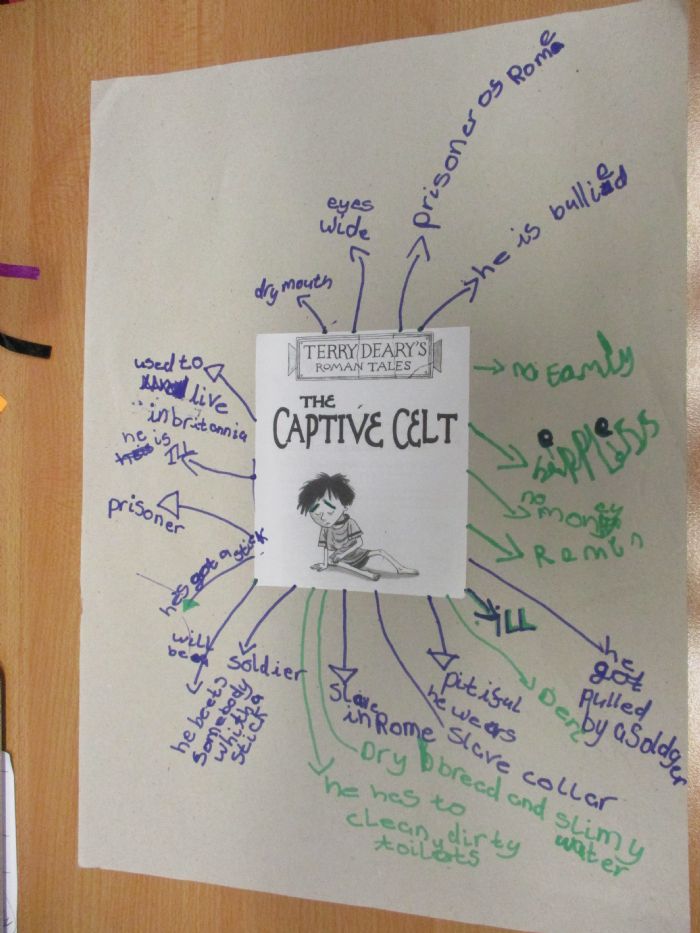 prisoner os Rome
he is bullied
eyes
wide
dry mouth
TERRY DEARY'S
ROMAN TALES
THE
CAPTIVE CELT
used to
live
in britannia
he is
Ill
prisoner
he's got a stick
will
be
he beets
somebody
whith a
stick
soldier
Slave
in Rome
pitiful
he wears
slave collar
Dry bread and slimy
water
he has to
clean dirty
toilets
no Family
no
money
ill
he
got
pulled
by a Soldger